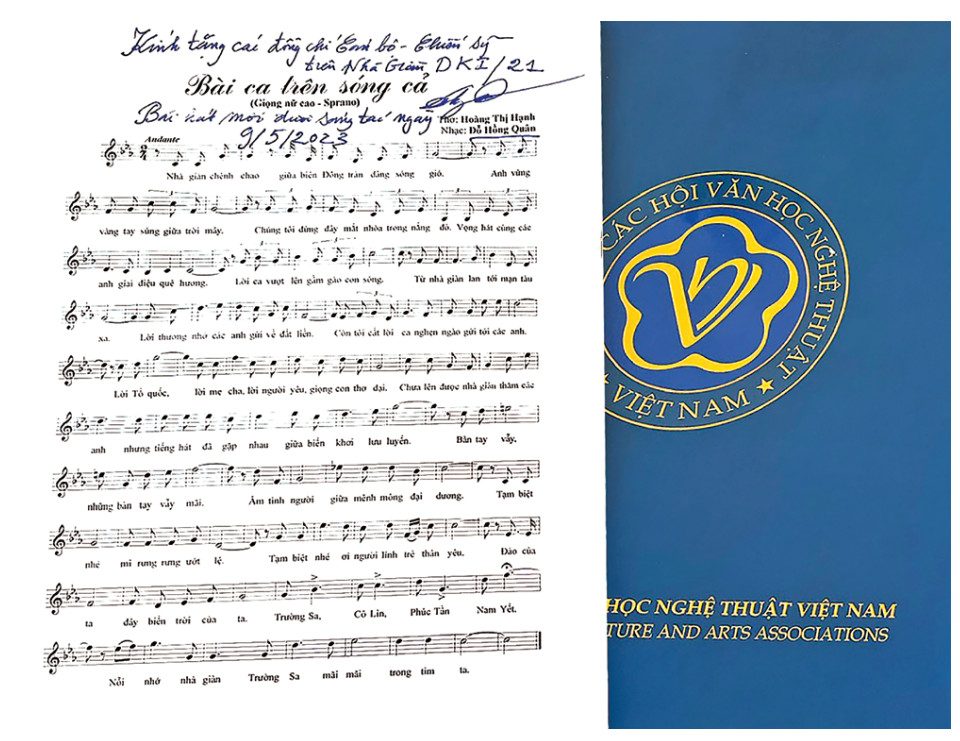 Kính tặng các đồng chí Cán bộ - Chiến sỹ
trên Nhà Giàn DKI/21
Bài ca trên sóng cả
(Giọng nữ cao - Sprano)
Bài hát mới dưới sóng tại ngay
Thơ: Hoàng Thị Hạnh
9/5/2023
Nhạc: Đỗ Hồng Quân
Andante
Nhà giàn chênh chao giữa biển Đông tràn dâng sóng gió. Anh vững
vàng tay súng giữa trời mây. Chúng tôi đứng đây mắt nhòa trong nắng đỏ. Vọng hát cùng các
anh giai điệu quê hương. Lời ca vượt lên gầm gào con sóng. Từ nhà giàn lan tới mạn tàu
xa. Lời thương nhớ các anh gửi về đất liền. Còn tôi cất lời ca nghẹn ngào gửi tới các anh.
Lời Tổ quốc, lời mẹ cha, lời người yêu, giọng con thơ dại. Chưa lên được nhà giàn thăm các
anh nhưng tiếng hát đã gặp nhau giữa biển khơi lưu luyến. Bàn tay vẫy,
những bàn tay vẫy mãi. Ấm tình người giữa mênh mông đại dương. Tạm biệt
nhé mi rưng rưng ướt lệ. Tạm biệt nhé ơi người lính trẻ thân yêu. Đảo của
ta đây biển trời của ta. Trường Sa, Cô Lin, Phúc Tần Nam Yết.
Nỗi nhớ nhà giàn Trường Sa mãi mãi trong tim ta.
CÁC HỘI VĂN HỌC NGHỆ THUẬT
VIỆT NAM
HỌC NGHỆ THUẬT VIỆT NAM
TURE AND ARTS ASSOCIATIONS